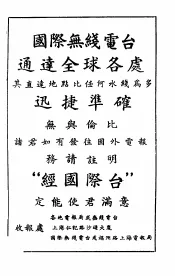 國際無綫電台
通達全球各處
其直達地點比任何水綫爲多
迅捷準確
無與倫比
諸君如有發往國外電報
務請註明
“經國際台”
定能使君滿意
各地電報局或無綫電台
收報處 上海仁記路沙遜大廈
國際無綫電台或福州路上海電報局